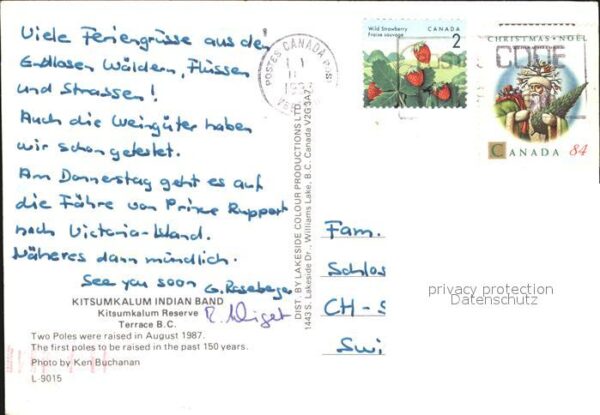 Viele Feriengrüsse aus den
Endlosen Wäldern, Flüssen
und Strassen!
Auch die Weingüter haben
wir schon getestet.
Am Donnerstag geht es auf
die Fähre von Prince Ruppert
nach Victoria-Island.
Näheres dann mündlich.
See you soon
KITSUMKALUM INDIAN BAND
Kitsumkalum Reserve
Terrace B.C.
Two Poles were raised in August 1987.
The first poles to be raised in the past 150 years.
Photo by Ken Buchanan
L-9015
DIST. BY LAKESIDE COLOUR PRODUCTIONS LTD.
1443 S. Lakeside Dr., Williams Lake, B.C. Canada V2G 3A7
POSTES CANADA POST
Wild Strawberry
Fraise sauvage
CANADA
2
CHRISTMAS · NOËL
CODE
CANADA 84
Fam.
Schlos
CH-
Swi
privacy protection
Datenschutz